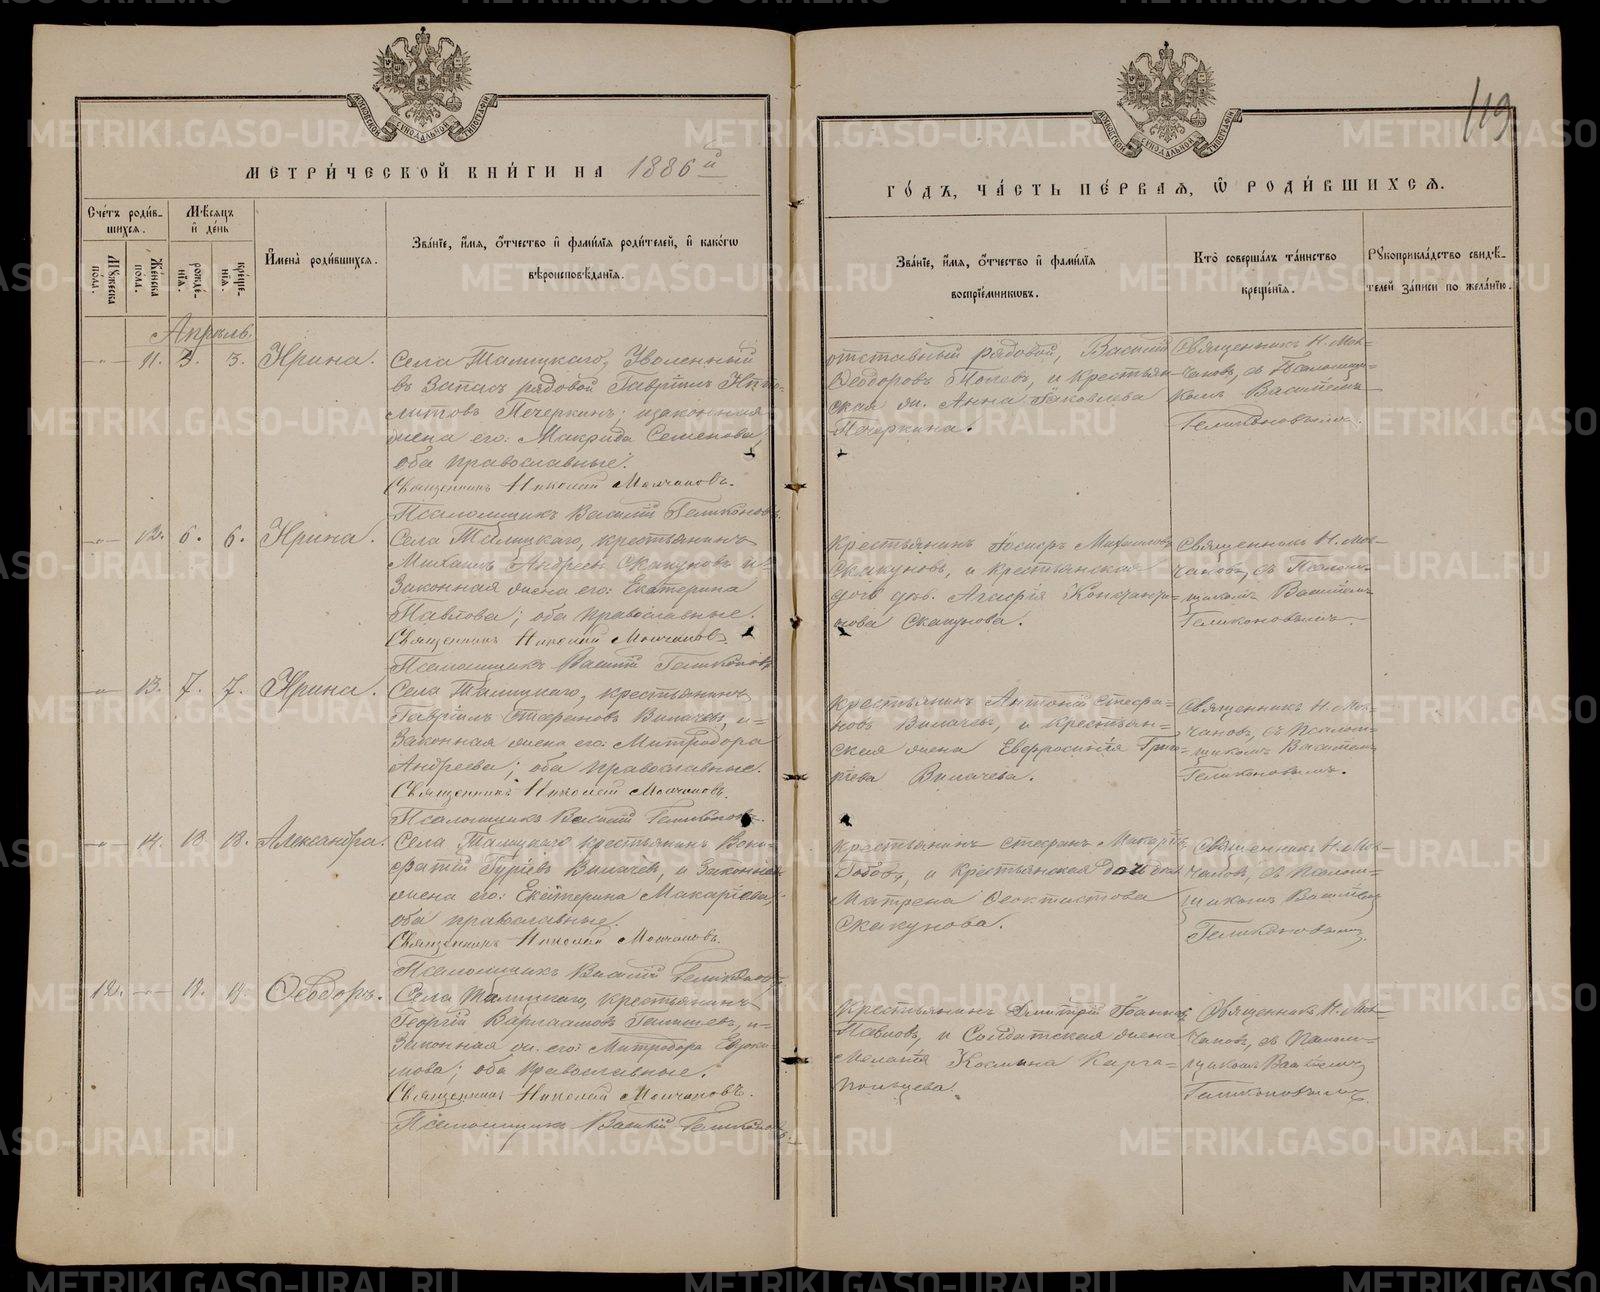 119
МЕТРИ́ЧЕСКОЙ КНИ́ГИ НА 1886й
ГО́ДЪ, ЧА́СТЬ ПЕ́РВАЯ, Ѽ РОДИ́ВШИХСѦ.
Сче́тъ роди́вшихсѧ.
Мѣ́сѧцъ и҆ де́нь
И҆мена̀ роди́вшихсѧ.
Зва́нїе, и҆́мѧ, ѻ҆́тчество и҆ фами́лїѧ роди́телей, и҆ како́гѡ
вѣроисповѣ́данїѧ.
Мꙋ́жеска по́ла.
Же́неска по́ла.
рожде́нїѧ.
креще́нїѧ.
Зва́нїе, и҆́мѧ, ѻ҆́тчество и҆ фами́лїѧ
воспрїе́мникѡвъ.
Кто̀ соверша́лъ та́инство
креще́нїѧ.
Рꙋкоприкла́дство свидѣ́телей за́писи по жела́нїю.
Апрѣль.
11. 3. 3. Ирина.
Села Талицкаго, Уволенный
въ Запасъ рядовой Гаврiилъ Иппо-
литовъ Печеркинъ; и законная
жена его: Макрида Семенова,
оба православные.
Священникъ Николай Молчановъ.
Псаломщикъ Василiй Геликоновъ.
отставный рядовой, Василiй
Ѳеодоровъ Поповъ, и крестьян
ская ж. Анна Iаковлева
Печеркина.
Священникъ Н. Мол-
чановъ, съ Псаломщи-
комъ Василiемъ
Геликоновымъ.
12. 6. 6. Ирина.
Села Талицкаго, крестьянинъ
Михаилъ Андреевъ Скакуновъ и
Законная жена его: Екатерина
Павлова; оба православные.
Священникъ Николай Молчановъ.
Псаломщикъ Василiй Геликоновъ
Крестьянинъ Iосифъ Михаиловъ
Скакуновъ, и крестьянская
дочь дѣв. Агафiя Константи-
нова Скакунова.
Священникъ Н. Мол-
чановъ, съ Псалом-
щикомъ Василiемъ
Геликоновымъ.
13. 7. 7. Ирина.
Села Талицкаго, крестьянинъ
Гаврiилъ Стефановъ Вилачевъ, и
Законная жена его: Митродора
Андреева; оба православные.
Священникъ Николай Молчановъ.
Псаломщикъ Василiй Геликоновъ.
крестьянинъ Антонiй Стефа-
новъ Вилачевъ, и крестьян-
ская жена Евфросинiя Григо-
рiева Вилачева.
Священникъ Н. Мол-
чановъ, съ Псалом-
щикомъ Василiемъ
Геликоновымъ.
14. 18. 18. Александра.
Села Талицкаго крестьянинъ Вони-
фатiй Гурiевъ Вилачев, и Законная
жена его: Екатерина Макарiева,
оба православные.
Священникъ Николай Молчановъ.
Псаломщикъ Василiй Геликоновъ
крестьянинъ Стефанъ Макарiевъ
и Крестьянская дочь
Матрена Ѳеоктистова
Скакунова.
Священникъ Н. Мол-
чановъ, съ Псалом-
щикомъ Василiемъ
Геликоновымъ.
12. Ѳеодоръ.
Села Талицкаго, крестьянинъ
Георгiй Варлаамовъ и
Законная ж. его: Митродора Евдоки-
мова; оба православные.
Священникъ Николай Молчановъ.
Псаломщикъ Василiй Геликоновъ.
Крестьянинъ Димитрiй Iоанновъ
Павловъ, и Солдатская жена
Меланiя Косьмина Карга-
польцева.
Священникъ Н. Мол-
чановъ, съ Псалом-
щикомъ Василiемъ
Геликоновымъ.
METRIKI.GASO-URAL.RU